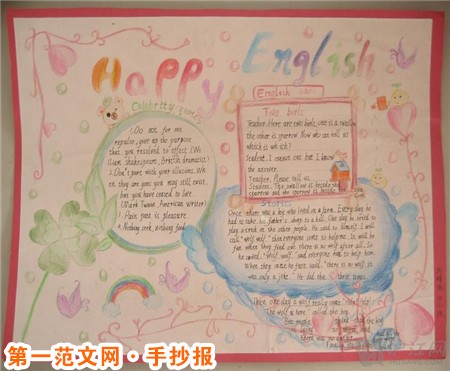 Happy English
Celebrity quotes
1.Do not, for one
repulse, give up the purpose
that you resolved to effect.(Wi
lliam Shakespeare, British dramatist)
2.Don't part with your illusions. Wh
en they are gone you may still exist,
but you have ceased to live
(Mark Twain, American writer)
3. Pain past is pleasure.
4. Nothing seek, nothing find.
English
Two birds
Teacher: Here are two birds, one is a swallow
the other is sparrow. Now who can tell us
which is which?
Student: I cannot but I know
the answer.
Teacher: Please tell us
Student: The swallow is beside the
sparrow and the sparrow is beside
Stories
Once there was a boy who lived on a farm. Every day he
had to take his father's sheep to a hill. One day he
play a trick on the other people. He said to himself, I will
call "wolf, wolf" then everyone come to help me. It will be
fun when they find out there is no wolf after all. So
he cried. "Wolf, wolf" and everyone ran to help him.
When they came he just said, "there is no wolf. It
was only a joke." He did the
Then one day a wolf really came
The wolf is here" called the boy.
But people
第一范文网·手抄报